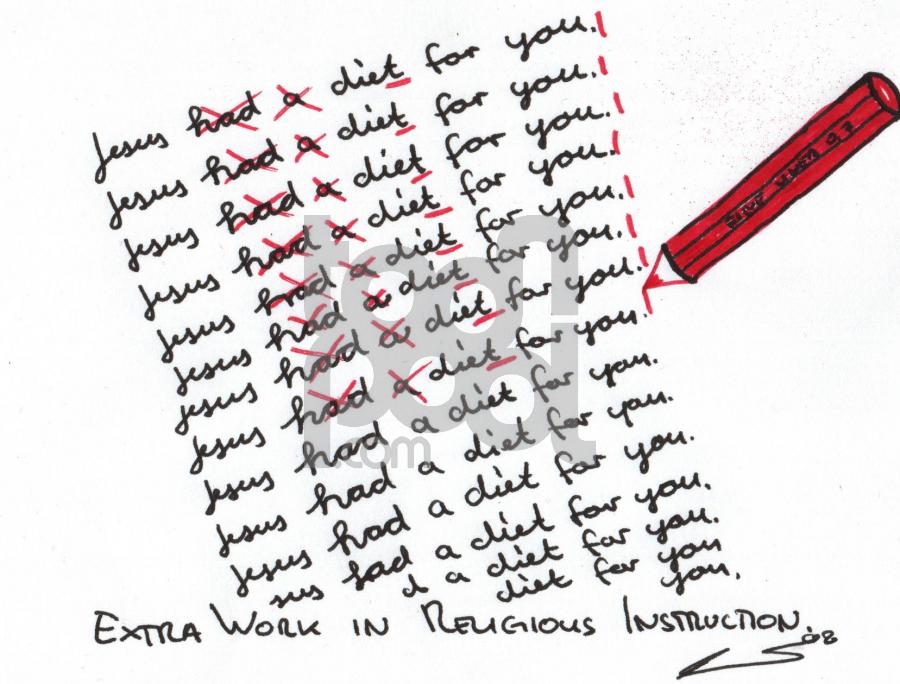 Jesus had a diet for you.
Jesus had a diet for you.
Jesus had a diet for you.
Jesus had a diet for you.
Jesus had a diet for you.
Jesus had a diet for you.
Jesus had a diet for you.
Jesus had a diet for you.
Jesus had a diet for you.
Jesus had a diet for you.
Jesus had a diet for you.
sus had a diet for you.
d a diet for you
diet for you.
EXTRA WORK IN RELIGIOUS INSTRUCTION.
toonpool.com